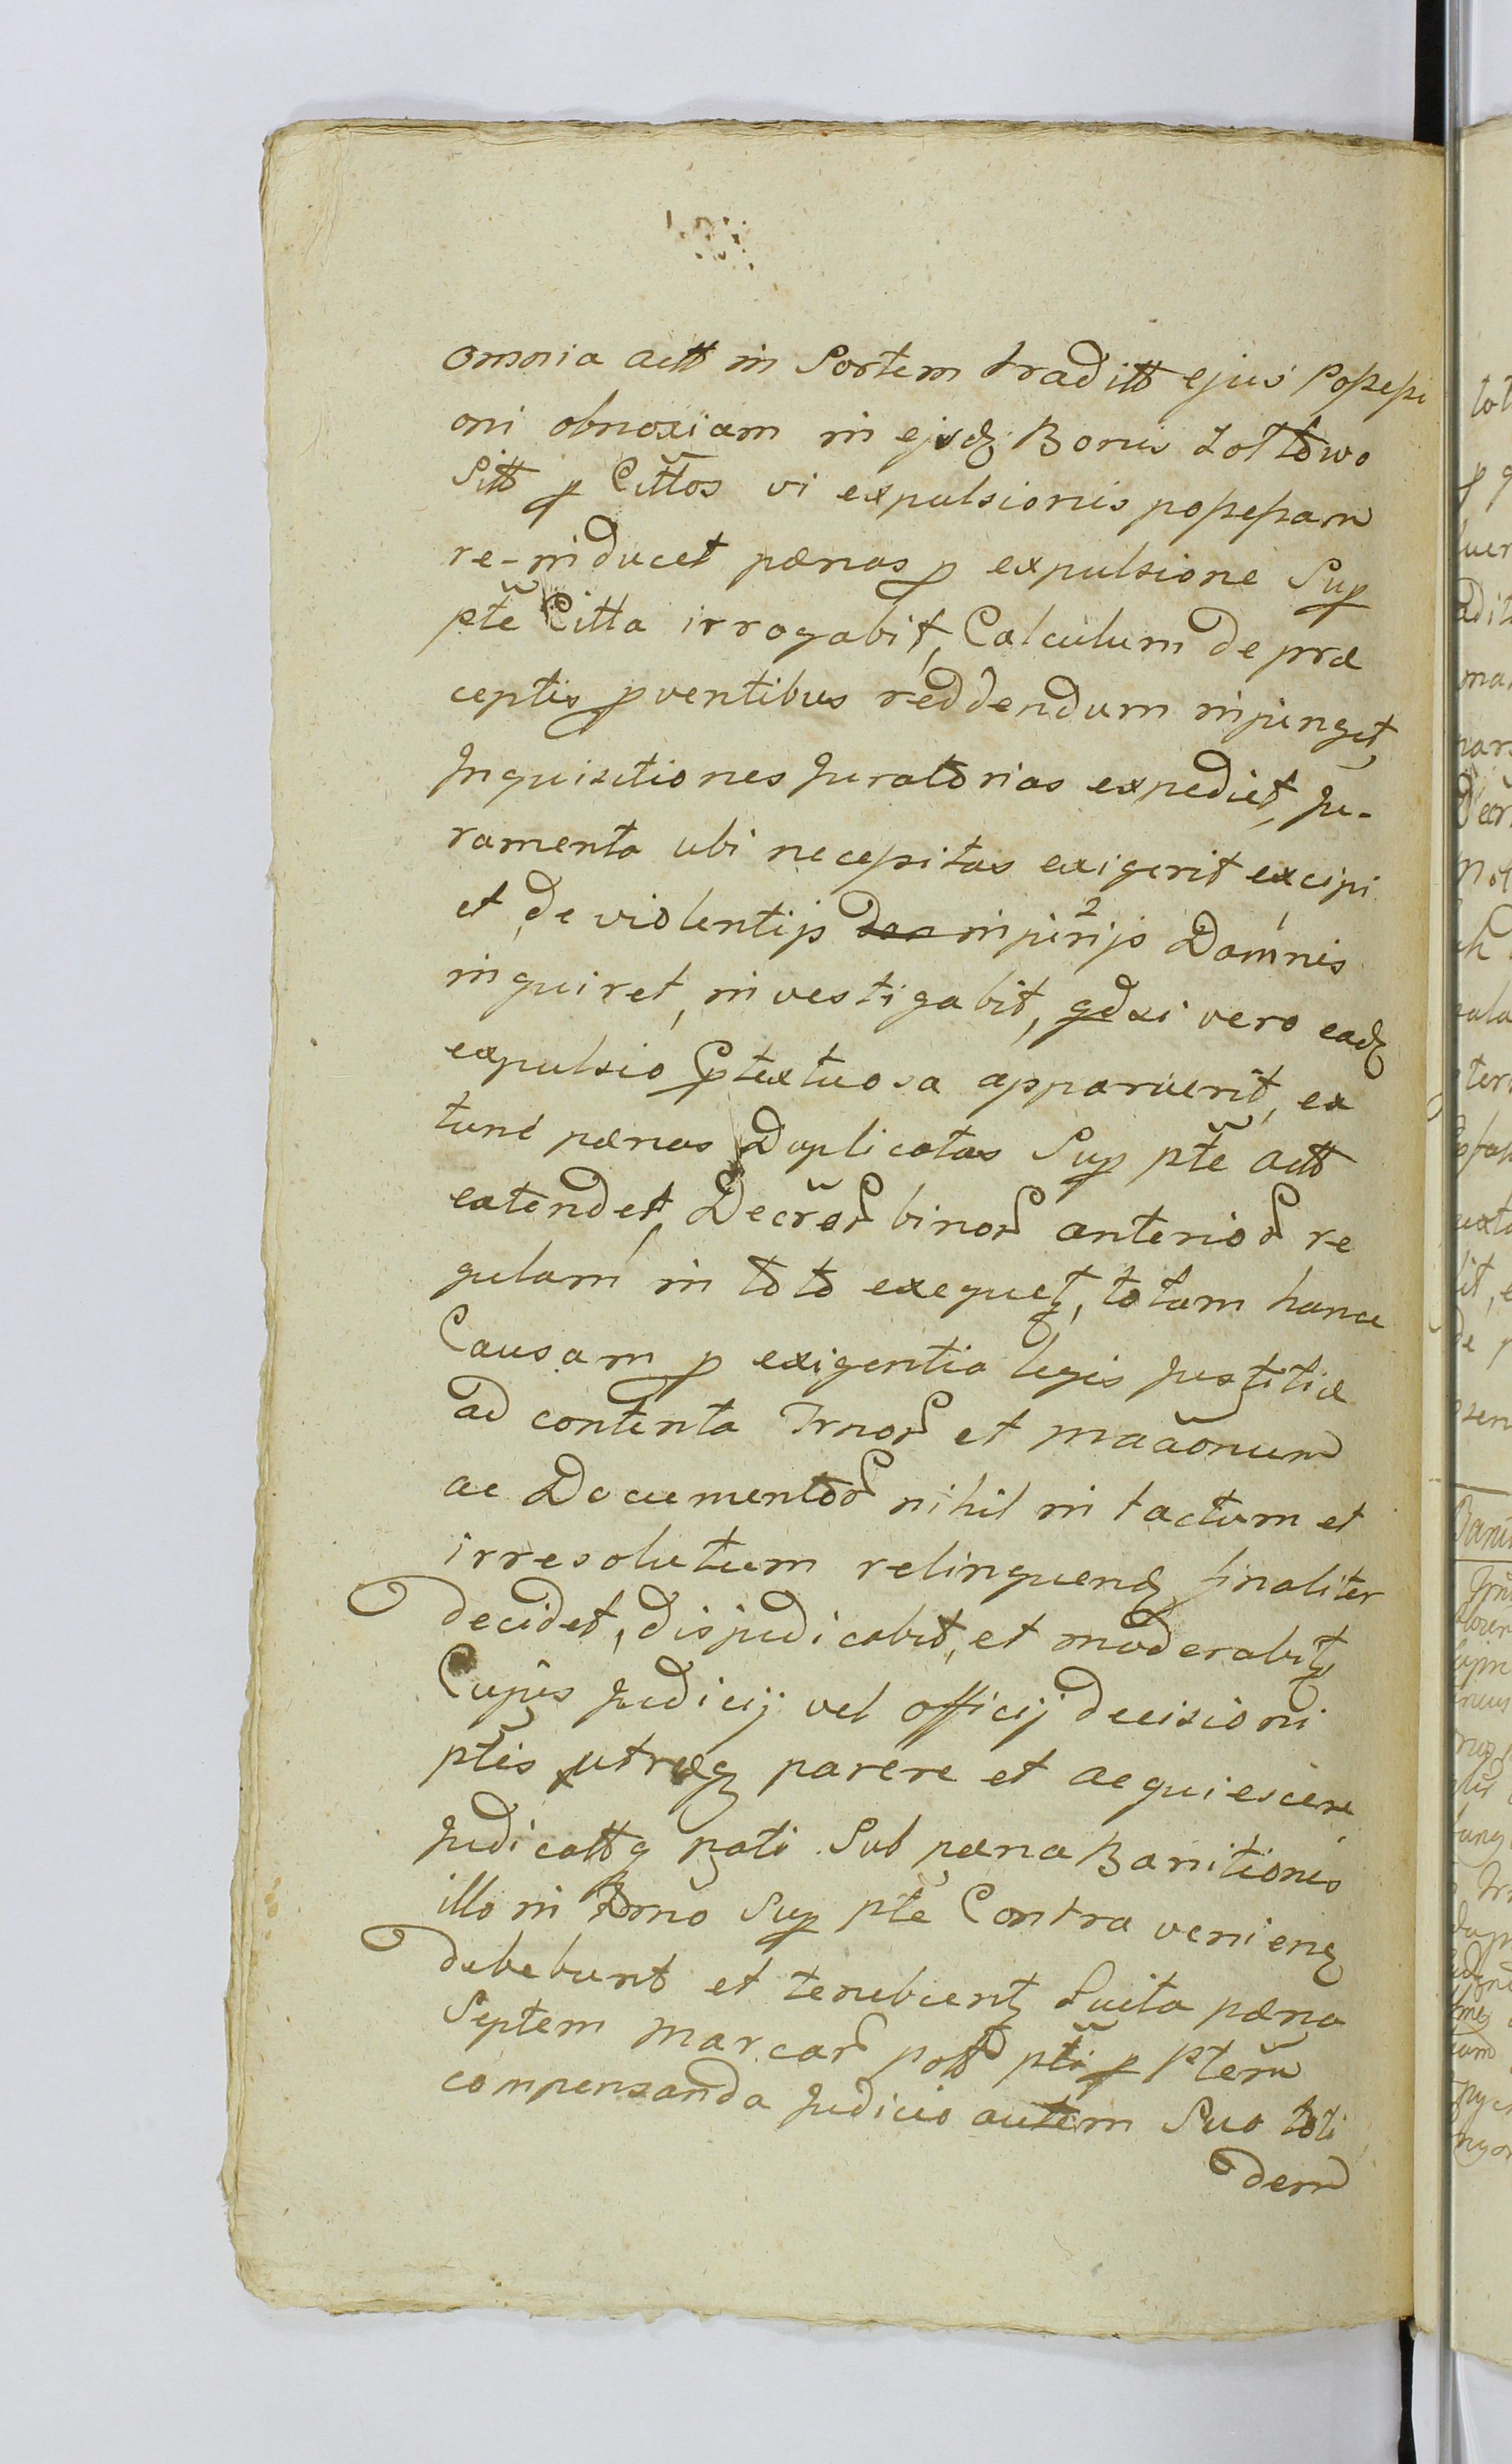 omnia actt in Sortem traditt ejus possessi
oni obnoxiam in ejusdꝫ Bonis Zoltowo
Sitt ꝑ Cittos vi expulsionis possessam
re-inducet pænas ꝓ expulsione Suꝑ
pte Citta irrogabit, Calculum de præ
ceptis ꝓventibus reddendum injunget,
Inquisitiones Juratorias expediet, Ju-
ramenta ubi necessitas exigerit excipi
et de violentijs injurijs Damnis
inquiret, investigabit, qdsi vero eadꝫ
expulsio ꝓtextuosa apparuerit, ex
tunc pænas Duplicatas Suꝑ pte actt
extendet, Decrorꝝ binorꝝ anteriorꝝ re
gulam in toto exequetꝛ, totam hanc
Causam ꝓ exigentia legis Justitiæ
ad contenta Trnorꝝ et maãonum
ac Documentorꝝ nihil in tactum et
irresolutum relinquenꝫ finaliter
decidet, disjudicabit, et moderabitꝛ
Cujus Judicij vel officij decisioni
ptes utræqꝫ parere et acquiescere
Judicattqꝫ pati Sub pæna Banitionis
illo in Trno Suꝑ pte Contra venienꝫ
debebunt et tenebuntꝛ Luita pæna
Septem marcarꝝ pottd pti ꝑ ptem
compensanda Judicio autem Suo toti
dem